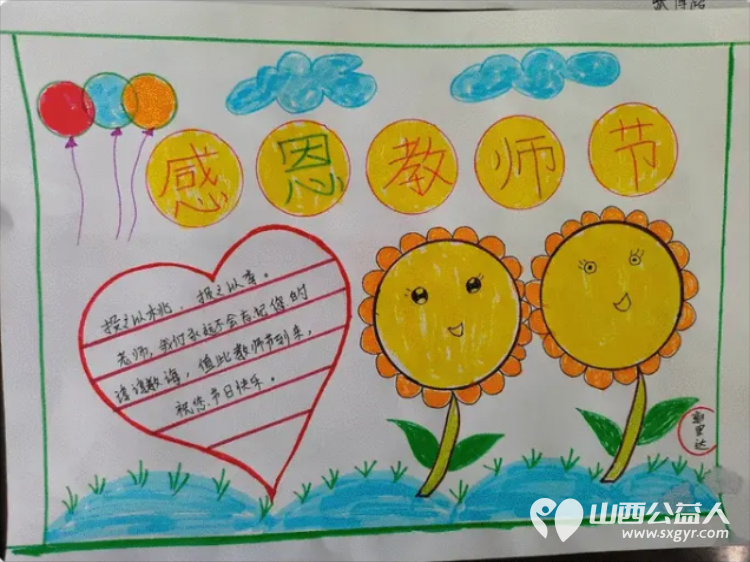 感恩教师节
投之以木桃,报之以李。
老师,我们永远不会忘记您的
谆谆教诲,值此教师节到来,
祝您节日快乐。
山西公益人
www.sxgyr.com